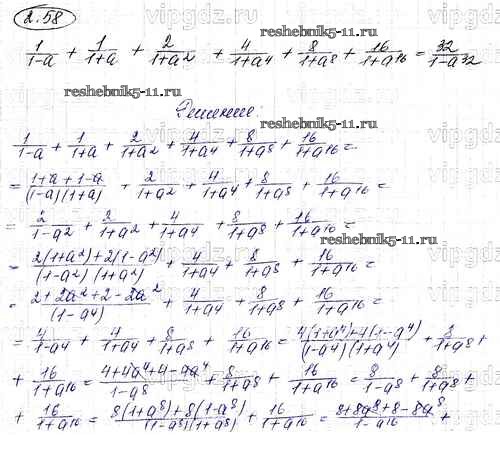 2.58
1/(1-a) + 1/(1+a) + 2/(1+a²) + 4/(1+a⁴) + 8/(1+a⁸) + 16/(1+a¹⁶) = 32/(1-a³²)
reshebnik5-11.ru
reshebnik5-11.ru
Решение:
reshebnik5-11.ru
1/(1-a) + 1/(1+a) + 2/(1+a²) + 4/(1+a⁴) + 8/(1+a⁸) + 16/(1+a¹⁶) =
= (1+a+1-a)/((1-a)(1+a)) + 2/(1+a²) + 4/(1+a⁴) + 8/(1+a⁸) + 16/(1+a¹⁶) =
= 2/(1-a²) + 2/(1+a²) + 4/(1+a⁴) + 8/(1+a⁸) + 16/(1+a¹⁶) =
reshebnik5-11.ru
= (2(1+a²)+2(1-a²))/((1-a²)(1+a²)) + 4/(1+a⁴) + 8/(1+a⁸) + 16/(1+a¹⁶) =
= (2+2a²+2-2a²)/(1-a⁴) + 4/(1+a⁴) + 8/(1+a⁸) + 16/(1+a¹⁶) =
= 4/(1-a⁴) + 4/(1+a⁴) + 8/(1+a⁸) + 16/(1+a¹⁶) = (4(1+a⁴)+4(1-a⁴))/((1-a⁴)(1+a⁴)) + 8/(1+a⁸) +
+ 16/(1+a¹⁶) = (4+4a⁴+4-4a⁴)/(1-a⁸) + 8/(1+a⁸) + 16/(1+a¹⁶) = 8/(1-a⁸) + 8/(1+a⁸) +
+ 16/(1+a¹⁶) = (8(1+a⁸)+8(1-a⁸))/((1-a⁸)(1+a⁸)) + 16/(1+a¹⁶) = (8+8a⁸+8-8a⁸)/(1-a¹⁶) +
vipgdz.ru